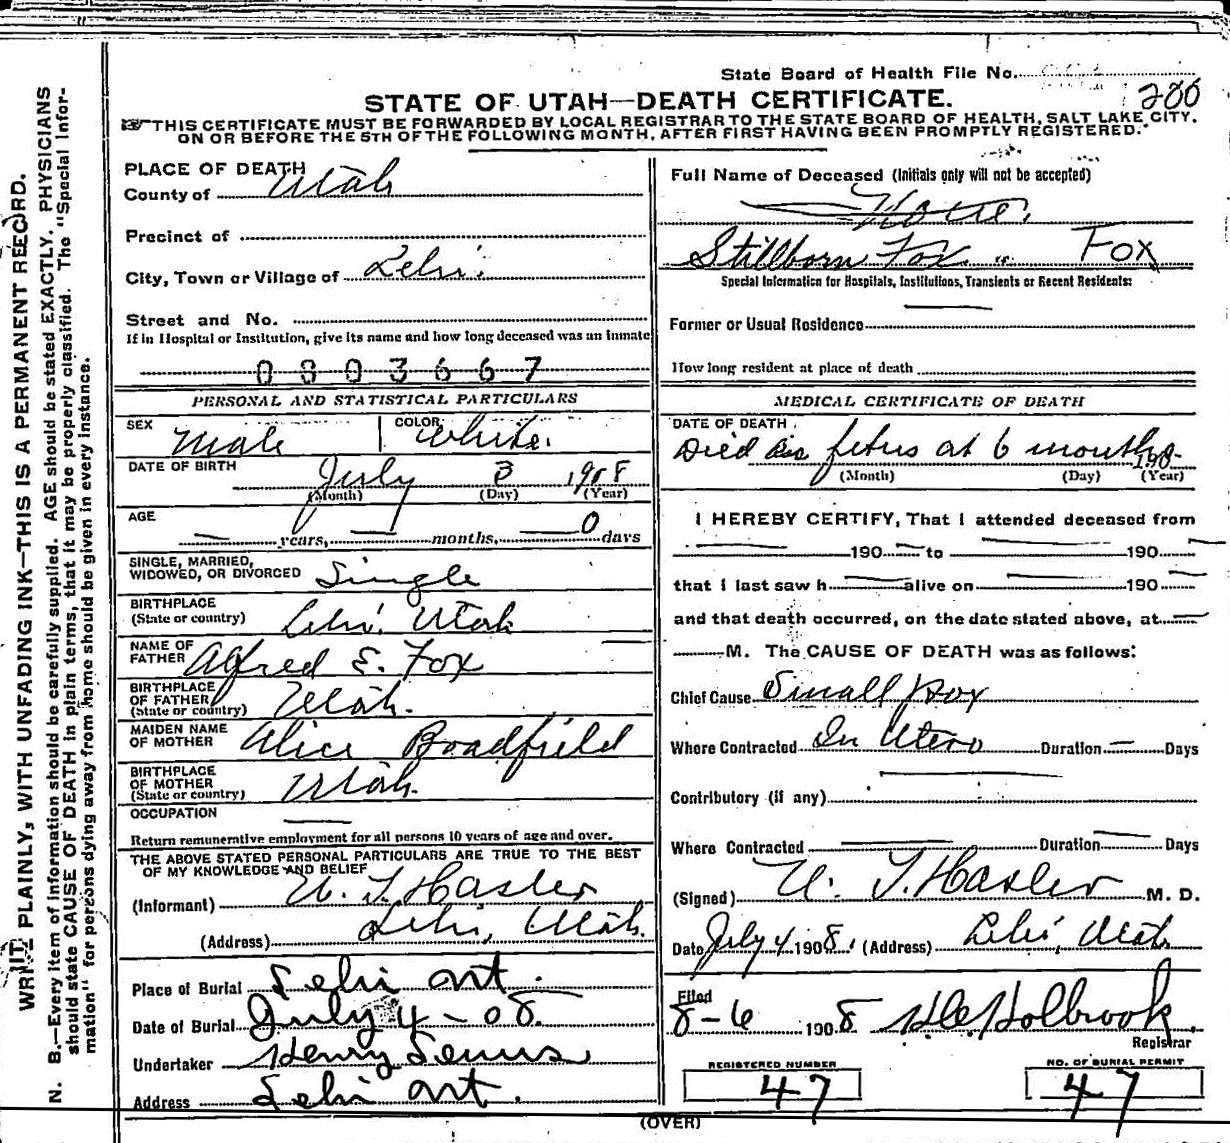 State Board of Health File No.
286
STATE OF UTAH—DEATH CERTIFICATE.
☞ THIS CERTIFICATE MUST BE FORWARDED BY LOCAL REGISTRAR TO THE STATE BOARD OF HEALTH, SALT LAKE CITY,
ON OR BEFORE THE 5TH OF THE FOLLOWING MONTH, AFTER FIRST HAVING BEEN PROMPTLY REGISTERED.
WRITE PLAINLY, WITH UNFADING INK—THIS IS A PERMANENT RECORD.
N. B.—Every item of information should be carefully supplied. AGE should be stated EXACTLY. PHYSICIANS
should state CAUSE OF DEATH in plain terms, that it may be properly classified. The "Special Infor-
mation" for persons dying away from home should be given in every instance.
PLACE OF DEATH
County of Utah
Precinct of
City, Town or Village of Lehi.
Street and No.
If in Hospital or Institution, give its name and how long deceased was an inmate
0803667
PERSONAL AND STATISTICAL PARTICULARS
SEX Male COLOR White.
DATE OF BIRTH July 3 1908
(Month) (Day) (Year)
AGE — years, — months, — 0 days
SINGLE, MARRIED,
WIDOWED, OR DIVORCED Single
BIRTHPLACE
(State or country) Lehi. Utah
NAME OF
FATHER Alfred E. Fox
BIRTHPLACE
OF FATHER
(State or country) Utah.
MAIDEN NAME
OF MOTHER Alice Bradfield
BIRTHPLACE
OF MOTHER
(State or country) Utah.
OCCUPATION —
Return remunerative employment for all persons 10 years of age and over.
THE ABOVE STATED PERSONAL PARTICULARS ARE TRUE TO THE BEST
OF MY KNOWLEDGE AND BELIEF
(Informant) W. T. Hasler
(Address) Lehi, Utah.
Place of Burial Lehi
Date of Burial July 4-08.
Undertaker Henry Lewis
Address Lehi
Full Name of Deceased (Initials only will not be accepted)
None.
Stillborn Fox Fox
Special Information for Hospitals, Institutions, Transients or Recent Residents:
Former or Usual Residence
How long resident at place of death
MEDICAL CERTIFICATE OF DEATH
DATE OF DEATH
Died as fetus at 6 months 190
(Month) (Day) (Year)
I HEREBY CERTIFY, That I attended deceased from
— 190 — to — 190 —
that I last saw h — alive on — 190 —
and that death occurred, on the date stated above, at —
M. The CAUSE OF DEATH was as follows:
Chief Cause Small Pox
Where Contracted In Utero Duration — Days
Contributory (if any)
Where Contracted — Duration — Days
(Signed) W. T. Hasler M. D.
Date July 4 1908. (Address) Lehi, Utah
Filed
8-6 1908 Holbrook.
Registrar
REGISTERED NUMBER
47
NO. OF BURIAL PERMIT
47
(OVER)